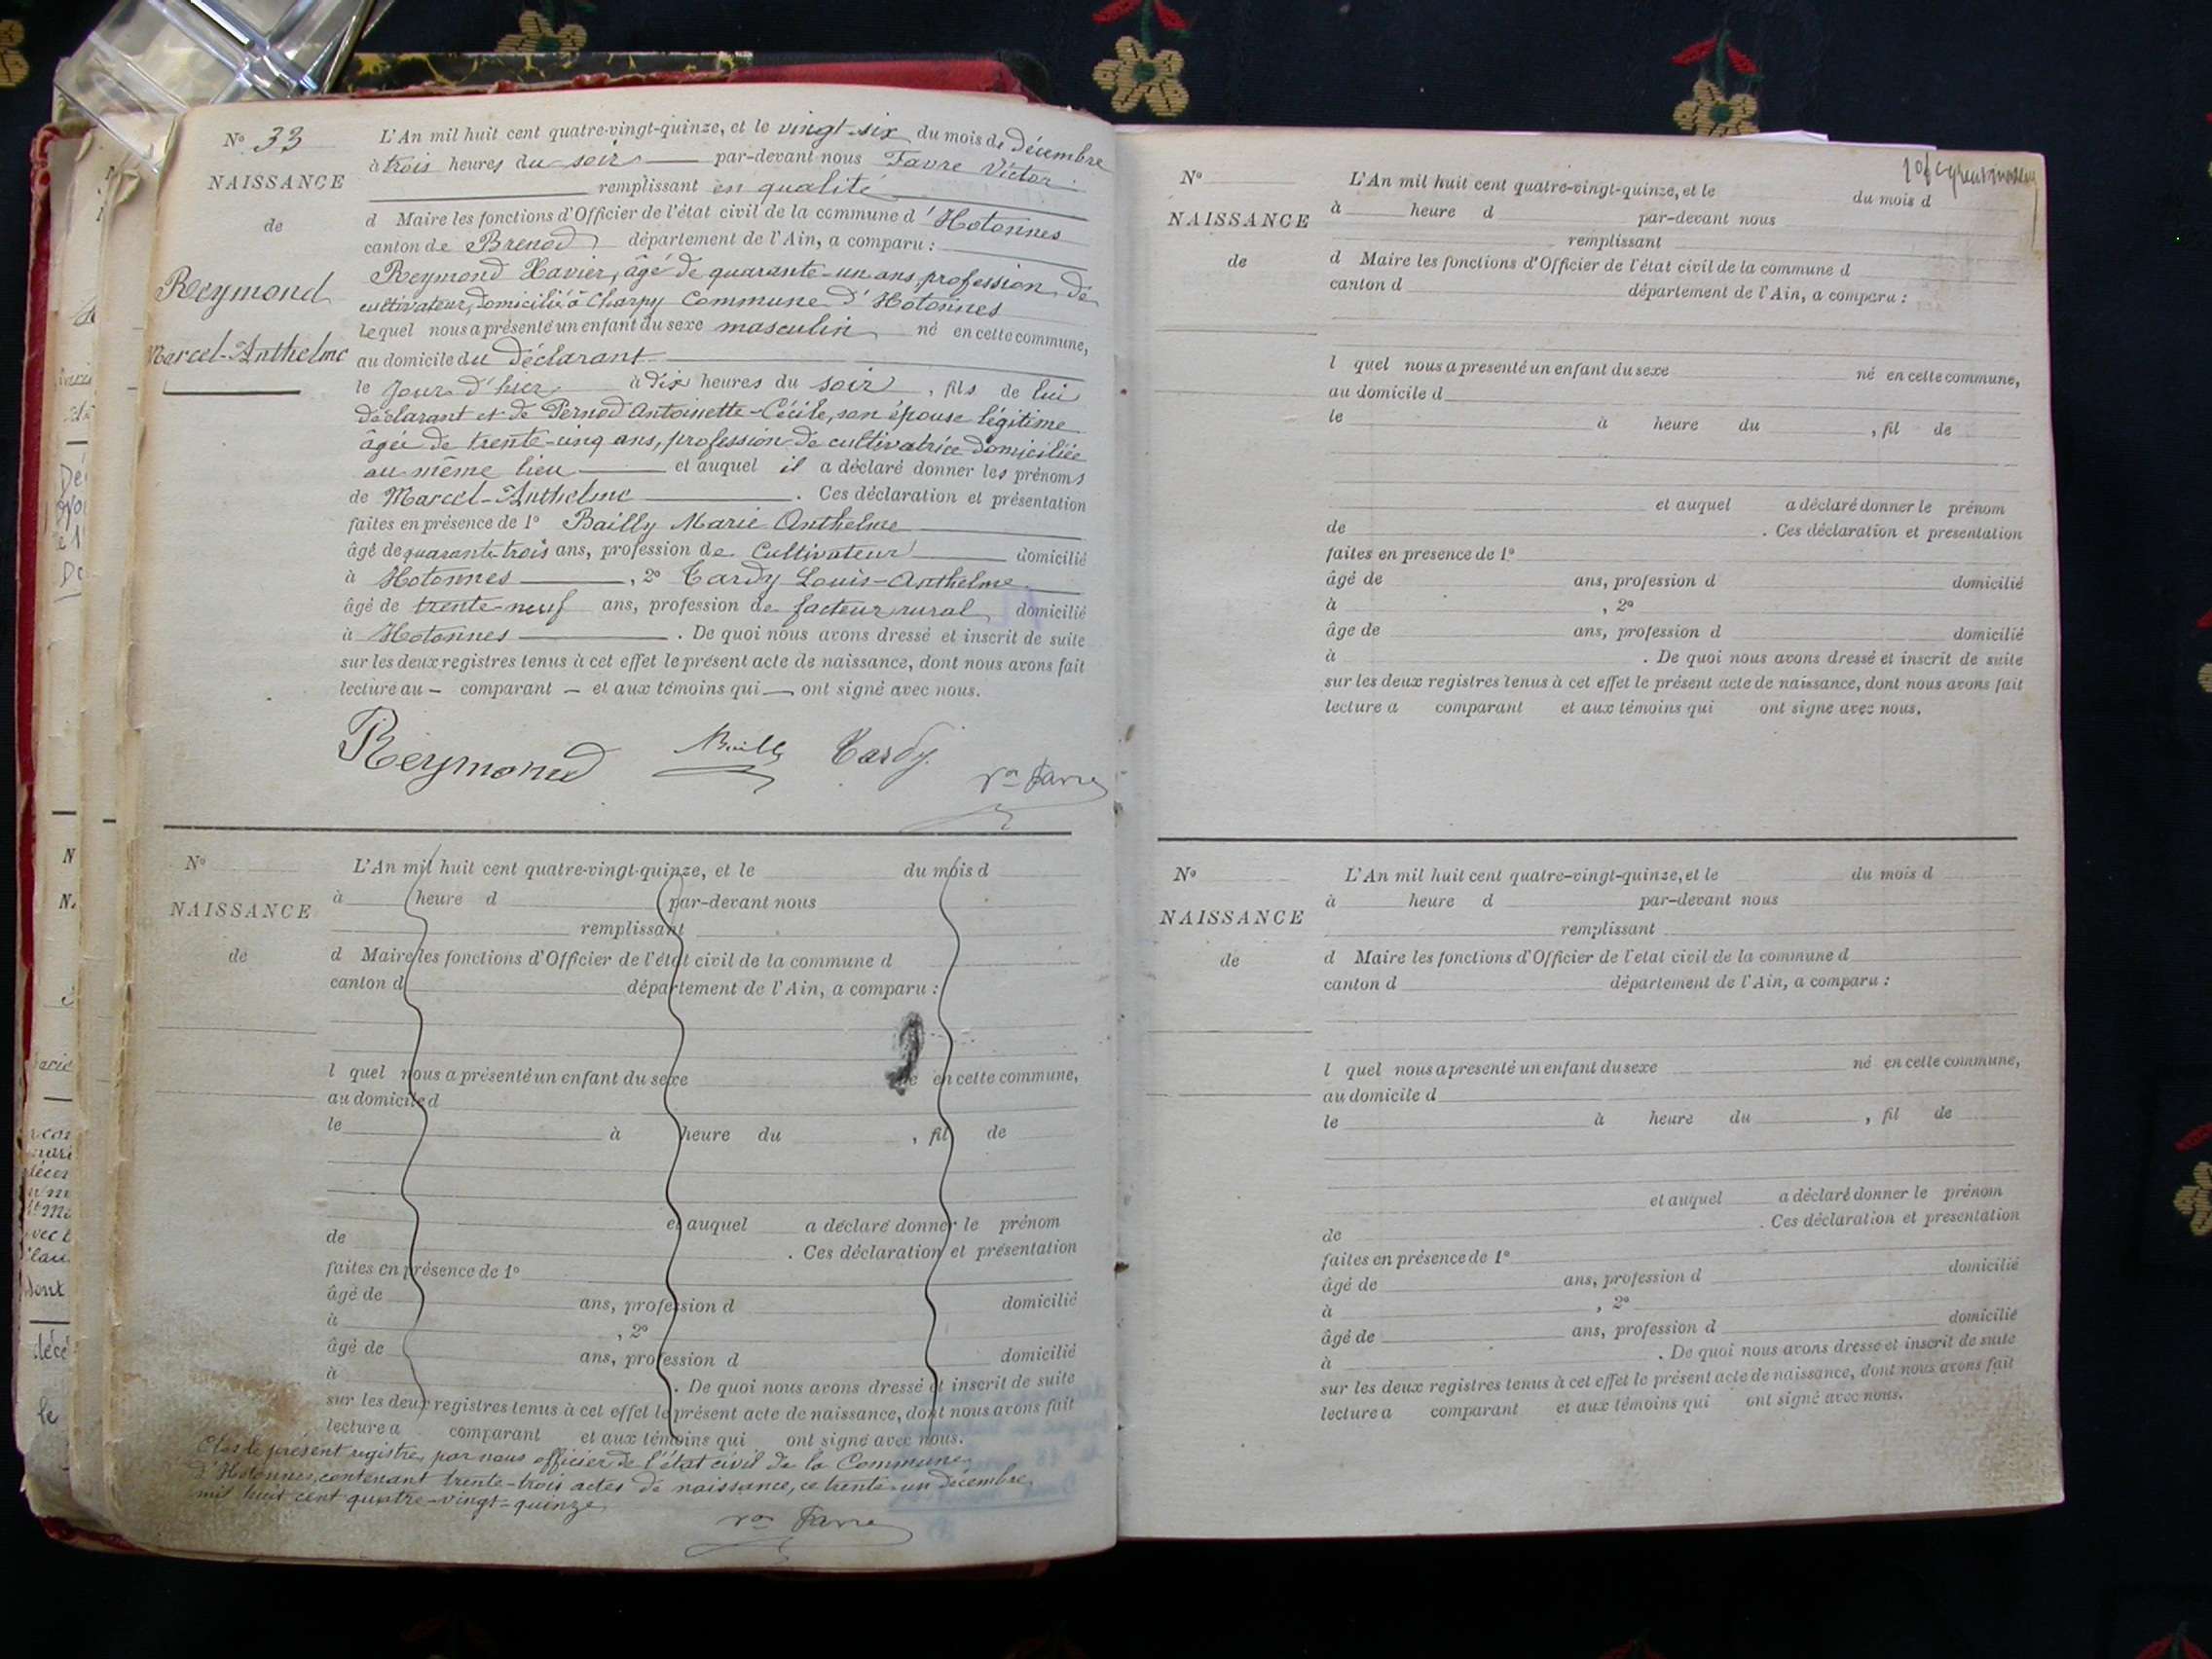 N° 33
NAISSANCE
de
Reymond
Marcel-Anthelme
L'An mil huit cent quatre-vingt-quinze, et le vingt-six du mois de décembre
à trois heures du soir par-devant nous Favre Victor
remplissant en qualité
d Maire les fonctions d'Officier de l'état civil de la commune d'Hotonnes
canton de Brénod département de l'Ain, a comparu :
Reymond Xavier, âgé de quarante-un ans, profession de
cultivateur, domicilié à Charpy Commune d'Hotonnes
lequel nous a présenté un enfant du sexe masculin né en cette commune,
au domicile du déclarant
le jour d'hier à dix heures du soir, fils de lui
déclarant et de Pernod Antoinette-Cécile, son épouse légitime
âgée de trente-cinq ans, profession de cultivatrice domiciliée
au même lieu et auquel il a déclaré donner les prénoms
de Marcel-Anthelme. Ces déclaration et présentation
faites en présence de 1° Bailly Marie Anthelme
âgé de quarante-trois ans, profession de Cultivateur domicilié
à Hotonnes, 2° Tardy Louis-Anthelme
âgé de trente-neuf ans, profession de facteur rural domicilié
à Hotonnes. De quoi nous avons dressé et inscrit de suite
sur les deux registres tenus à cet effet le présent acte de naissance, dont nous avons fait
lecture au — comparant — et aux témoins qui — ont signé avec nous.
Reymond Bailly Tardy. Vor Favre
N°
NAISSANCE
de
L'An mil huit cent quatre-vingt-quinze, et le du mois d
à heure d par-devant nous
remplissant
d Maire les fonctions d'Officier de l'état civil de la commune d
canton d département de l'Ain, a comparu :
l quel nous a présenté un enfant du sexe né en cette commune,
au domicile d
le à heure du , fil de
et auquel a déclaré donner le prénom
de . Ces déclaration et présentation
faites en présence de 1°
âgé de ans, profession d domicilié
à , 2°
âgé de ans, profession d domicilié
à . De quoi nous avons dressé et inscrit de suite
sur les deux registres tenus à cet effet le présent acte de naissance, dont nous avons fait
lecture a comparant et aux témoins qui ont signé avec nous.
Clos le présent registre, par nous officier de l'état civil de la Commune
d'Hotonnes, contenant trente-trois actes de naissance, ce trente-un décembre
mil huit cent quatre-vingt-quinze
Vor Favre
N°
NAISSANCE
de
L'An mil huit cent quatre-vingt-quinze, et le du mois d
à heure d par-devant nous
remplissant
d Maire les fonctions d'Officier de l'état civil de la commune d
canton d département de l'Ain, a comparu :
l quel nous a présenté un enfant du sexe né en cette commune,
au domicile d
le à heure du , fil de
et auquel a déclaré donner le prénom
de . Ces déclaration et présentation
faites en présence de 1°
âgé de ans, profession d domicilié
à , 2°
âge de ans, profession d domicilié
à . De quoi nous avons dressé et inscrit de suite
sur les deux registres tenus à cet effet le présent acte de naissance, dont nous avons fait
lecture a comparant et aux témoins qui ont signé avec nous.
N°
NAISSANCE
de
L'An mil huit cent quatre-vingt-quinze, et le du mois d
à heure d par-devant nous
remplissant
d Maire les fonctions d'Officier de l'état civil de la commune d
canton d département de l'Ain, a comparu :
l quel nous a présenté un enfant du sexe né en cette commune,
au domicile d
le à heure du , fil de
et auquel a déclaré donner le prénom
de . Ces déclaration et présentation
faites en présence de 1°
âgé de ans, profession d domicilié
à , 2°
âgé de ans, profession d domicilié
à . De quoi nous avons dressé et inscrit de suite
sur les deux registres tenus à cet effet le présent acte de naissance, dont nous avons fait
lecture a comparant et aux témoins qui ont signé avec nous.